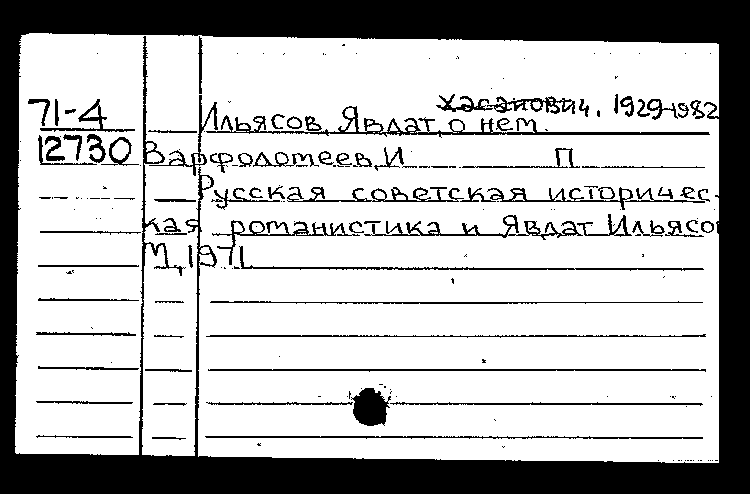 Хасанович, 1929-1982
71-4 Ильясов, Явдат, о нем.
12730 Варфоломеев, И П
Русская советская историчес-
кая романистика и Явдат Ильясо
М, 1971